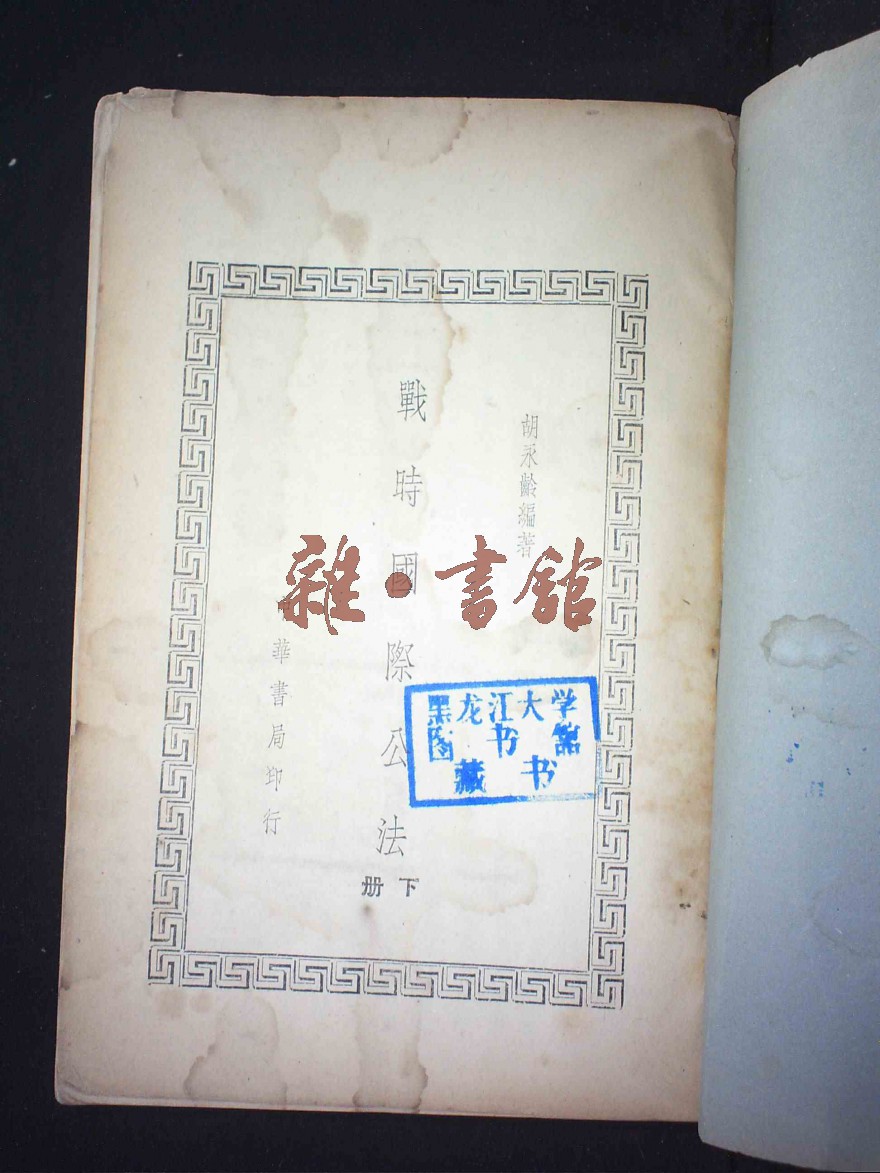 胡永齡編著
戰時國際公法
下册
中華書局印行
雜·書館
黑龙江大学
图书馆
藏书